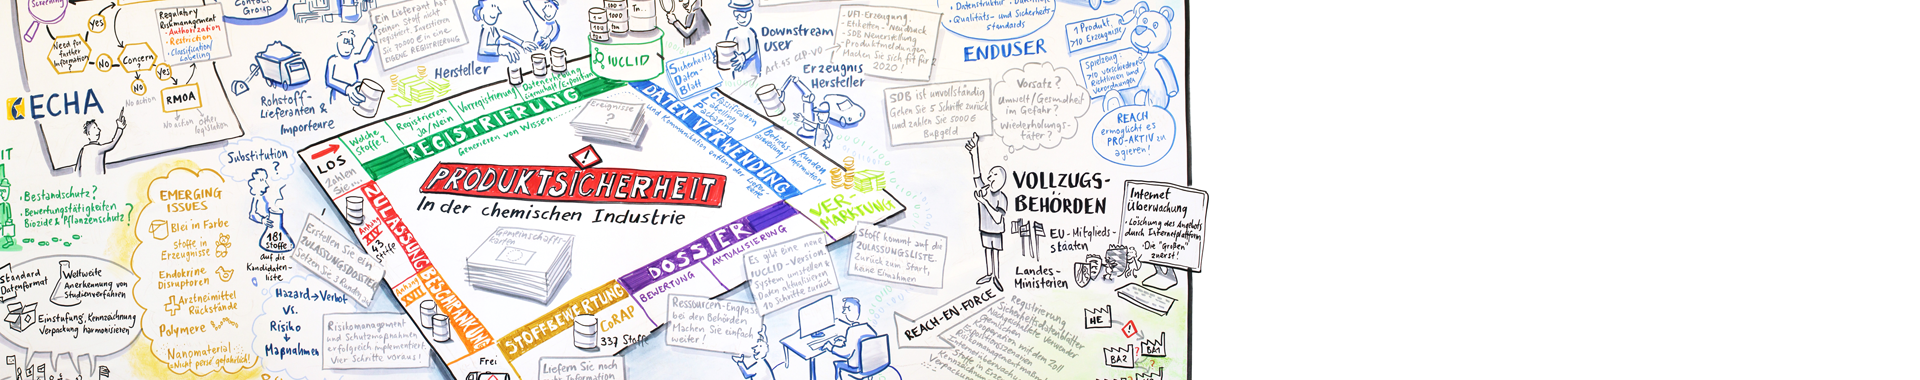 Regulatory
Riskmanagement
- Authorization
- Restriction
- Classification/
Labeling
Need for
further
Information
?
yes
No
Concern
?
yes
No
No action
RMOA
No action
other
legislation
ECHA
Contact
Group
Rohstoff-
Lieferanten &
Importeure
Ein Lieferant hat
seinen Stoff nicht
registriert. Investieren
Sie 30000 € in eine
EIGENE REGISTRIERUNG
Hersteller
IUCLID
Sicherheits
Daten-
Blatt
Downstream
user
Art. 45 CLP-VO
Erzeugnis
Hersteller
- UFI-Erzeugung
- Etiketten-Neudruck
- SDB Neuerstellung
- Produktmeldungen
Machen Sie sich fit für
2020!
• Qualitäts- und Sicherheits
standards
ENDUSER
1 Produkt,
>10 Erzeugnisse
Spielzeug
>10 verschiedene
Richtlinien und
Verordnungen
REACH
ermöglicht es
PRO-AKTIV zu
agieren!
SDB ist unvollständig
Gehen Sie 5 Schritte zurück
und zahlen Sie 5000 €
Bußgeld
Vorsatz?
Umwelt/Gesundheit
im Gefahr?
Wiederholungs-
täter?
VOLLZUGS-
BEHÖRDEN
EU-Mitglieds-
staaten
Landes-
Ministerien
Internet
Überwachung
• Löschung des Angebots
durch Internetplattform
• Die "Großen"
zuerst!
HE
BA1
BA2
REACH-EN-FORCE
Registrierung
Sicherheitsdatenblätter
Nachgeschaltete Verwender
Kooperation mit dem Zoll
Expositionsszenarien
Risikomanagementmaßn.
LOS
Zahlen
Sie...
Welche
Stoffe?
Registrieren
Ja/Nein
Vorregistrierung
Datenerhebung
REGISTRIERUNG
Generieren von Wissen
Ereignisse
?
DATEN VERWENDUNG
Classification
Labeling
Packaging
Kunden
Information
VER-
MARKTUNG
PRODUKTSICHERHEIT
In der chemischen Industrie
Gemeinschafts-
karten
ZULASSUNG
Anhang
XIV
43
Stoffe
BESCHRÄNKUNG
Anhang
XVII
STOFFBEWERTUNG
CoRAP
337 Stoffe
DOSSIER
BEWERTUNG
AKTUALISIERUNG
Frei
Es gibt eine neue
IUCLID-Version.
System umstellen &
Daten aktualisieren
10 Schritte zurück
Stoff kommt auf die
ZULASSUNGSLISTE.
zurück zum Start,
keine Einnahmen
Ressourcen-Engpass
bei den Behörden
Machen Sie einfach
weiter!
Liefern Sie noch
mehr Information
Erstellen Sie ein
ZULASSUNGSDOSSIER
Setzen Sie 3 Runden aus
Risikomanagement
und Schutzmaßnahmen
erfolgreich implementiert.
Vier Schritte voraus!
Substitution
?
181
Stoffe
auf die
Kandidaten-
liste
Hazard → Verbot
VS.
Risiko
→
Maßnahmen
EMERGING
ISSUES
Blei in Farbe
Stoffe in
Erzeugnisse
Endokrine
Disruptoren
Arzneimittel
Rückstände
Polymere
Nanomaterial
"Nicht perse gefährlich!"
• Bestandschutz?
• Bewertungstätigkeiten
Biozide & Pflanzenschutz?
Standard
Datenformat
Weltweite
Anerkennung von
Studienverfahren
Einstufung, Kennzeichnung
Verpackung harmonisieren